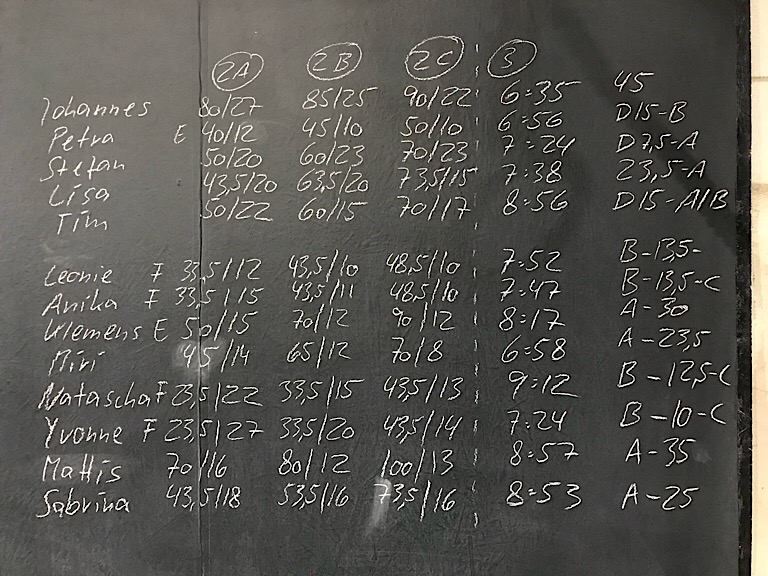 2A 2B 2C 3
Johannes 80/27 85/25 90/22 6:35 45
Petra E 40/12 45/10 50/10 6:56 D15-B
Stefan 50/20 60/23 70/23 7:24 D7,5-A
Lisa 43,5/20 63,5/20 73,5/15 7:38 23,5-A
Tim 50/22 60/15 70/17 8:56 D15-A/B
Leonie F 33,5/12 43,5/10 48,5/10 7:52 B-13,5-
Anika F 33,5/15 43,5/11 48,5/10 7:47 B-13,5-C
Klemens E 50/15 70/12 90/12 8:17 A-30
Miri 45/14 65/12 70/8 6:58 A-23,5
Natascha F 23,5/22 33,5/15 43,5/13 9:12 B-12,5-C
Yvonne F 23,5/27 33,5/20 43,5/14 7:24 B-10-C
Mattis 70/16 80/12 100/13 8:57 A-35
Sabrina 43,5/18 53,5/16 73,5/16 8:53 A-25